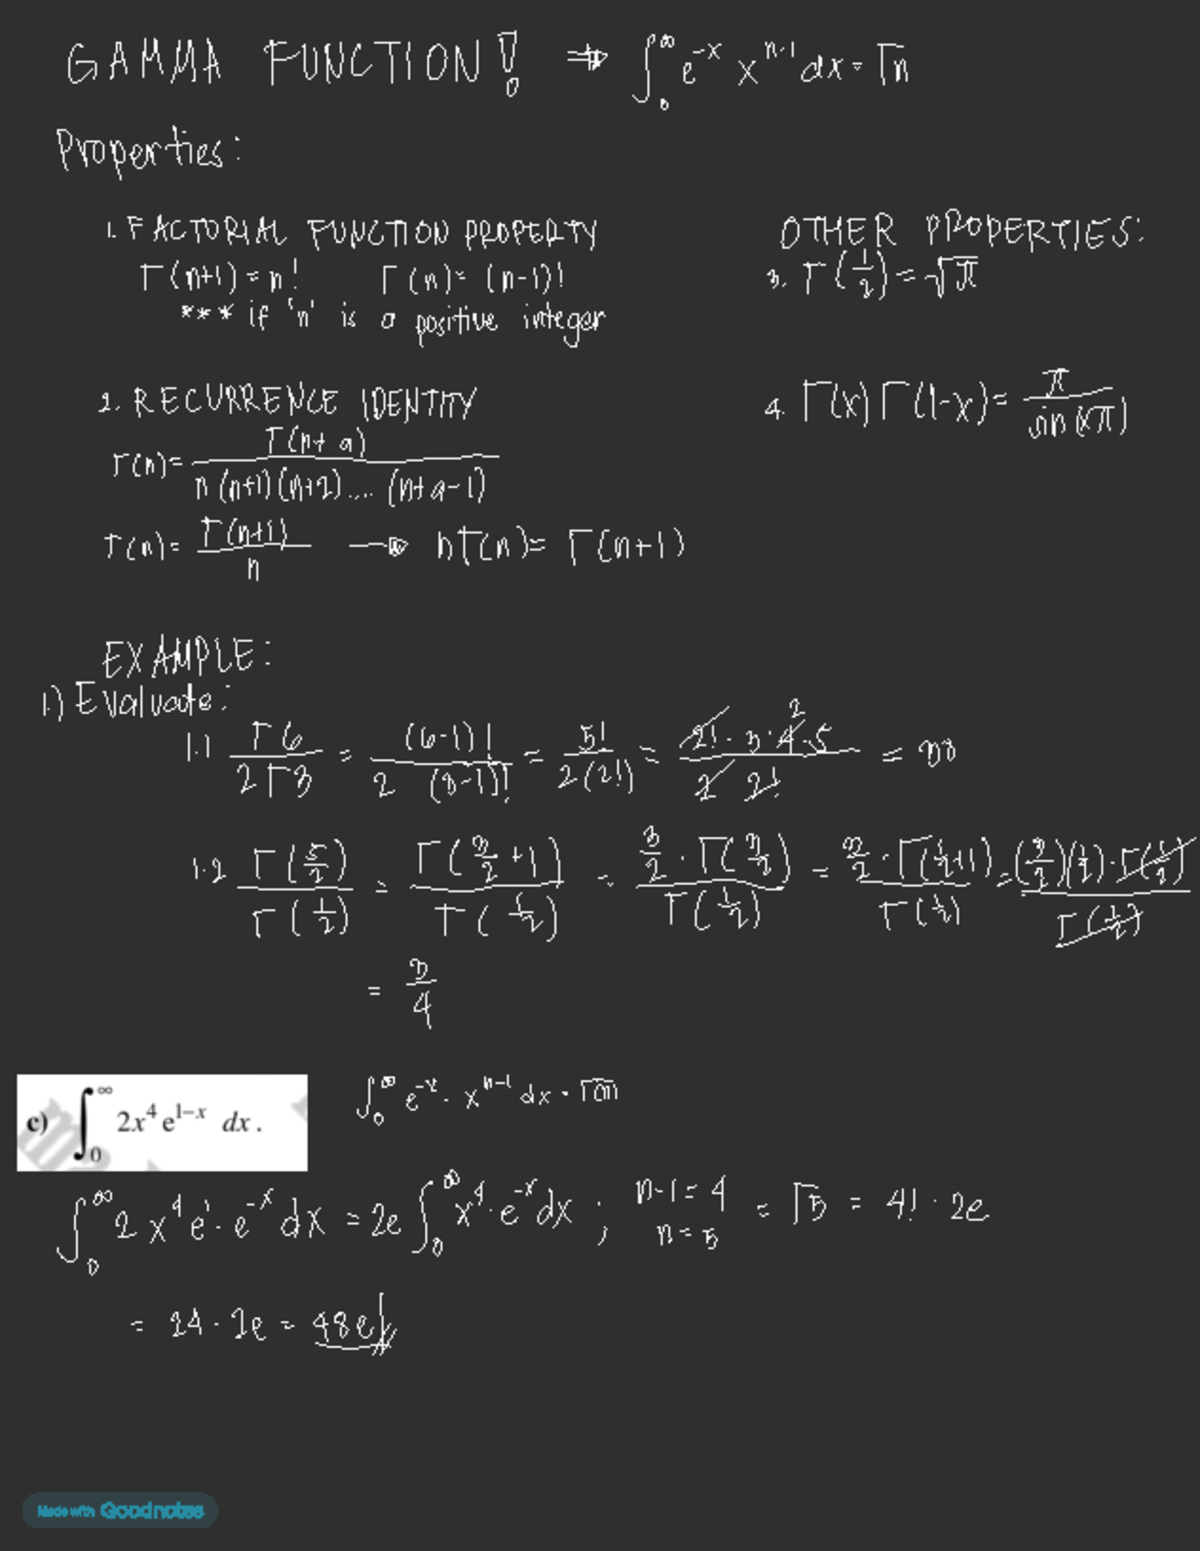 GAMMA FUNCTION! ⇒ ∫₀^∞ e^-x x^n-1 dx = Γn
Properties:
1. FACTORIAL FUNCTION PROPERTY
Γ(n+1) = n! Γ(n) = (n-1)!
*** if 'n' is a positive integer
OTHER PROPERTIES:
3. Γ(1/2) = √π
2. RECURRENCE IDENTITY
Γ(n) = Γ(n+a) / n(n+1)(n+2).... (n+a-1)
Γ(n) = Γ(n+1) / n → nΓ(n) = Γ(n+1)
4. Γ(x) Γ(1-x) = π / sin(xπ)
EXAMPLE:
1.) Evaluate:
1.1 Γ6 / 2Γ3 = (6-1)! / 2 (3-1)! = 5! / 2(2!) = 2! · 3 · 4 · 5 / 2 2! = 30
2
1.2 Γ(5/2) / Γ(1/2) = Γ(3/2 + 1) / Γ(1/2) = 3/2 · Γ(3/2) / Γ(1/2) = 3/2 · Γ(1/2+1) / Γ(1/2) = (3/2)(1/2) · Γ(1/2) / Γ(1/2)
= 3/4
c) ∫₀^∞ 2x^4 e^1-x dx. ∫₀^∞ e^-x · x^n-1 dx = Γ(n)
∫₀^∞ 2 x^4 e^1 · e^-x dx = 2e ∫₀^∞ x^4 · e^-x dx ; n-1 = 4 = Γ5 = 4! · 2e
n = 5
= 24 · 2e = 48e
Made with Goodnotes